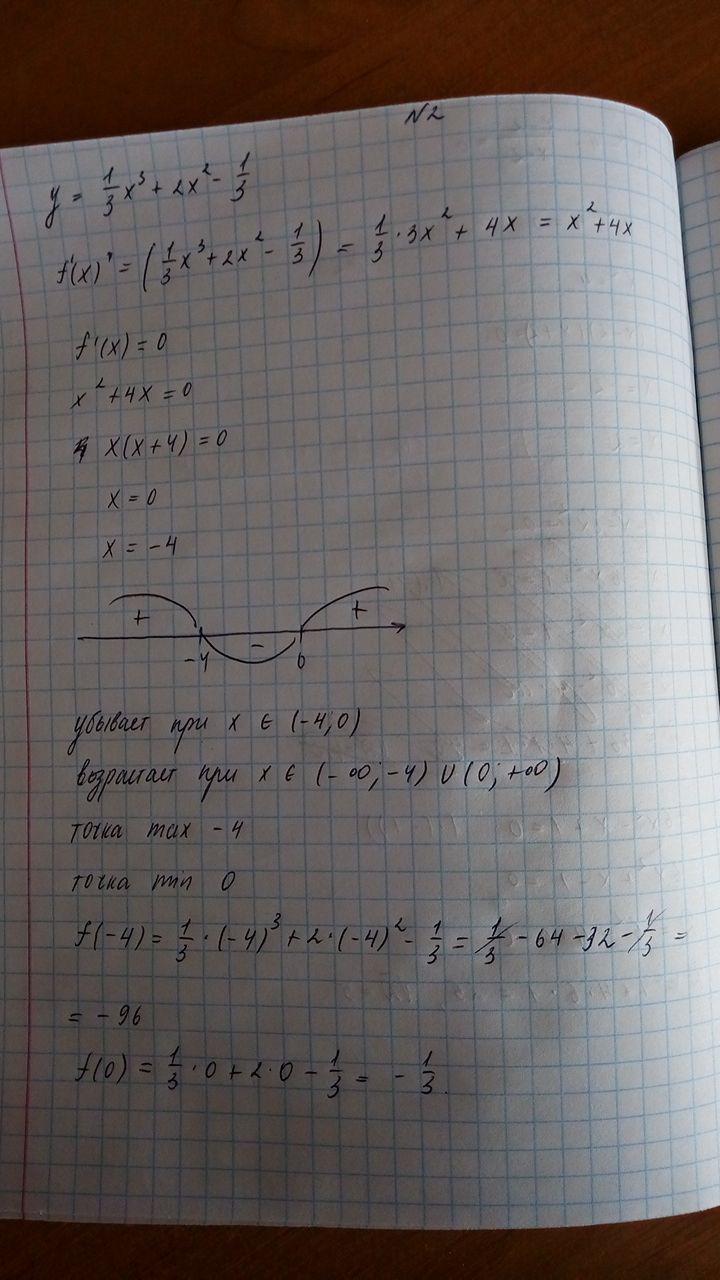 N2
y = 1/3 x³ + 2x² - 1/3
f'(x)' = (1/3 x³ + 2x² - 1/3) = 1/3 · 3x² + 4x = x² + 4x
f'(x) = 0
x² + 4x = 0
x(x + 4) = 0
x = 0
x = -4
+ - +
-4 0
убывает при x ∈ (-4;0)
возрастает при x ∈ (-∞; -4) ∪ (0; +∞)
точка max -4
точка min 0
f(-4) = 1/3 · (-4)³ + 2 · (-4)² - 1/3 = 1/3 - 64 - 32 - 1/3 =
= - 96
f(0) = 1/3 · 0 + 2 · 0 - 1/3 = - 1/3.